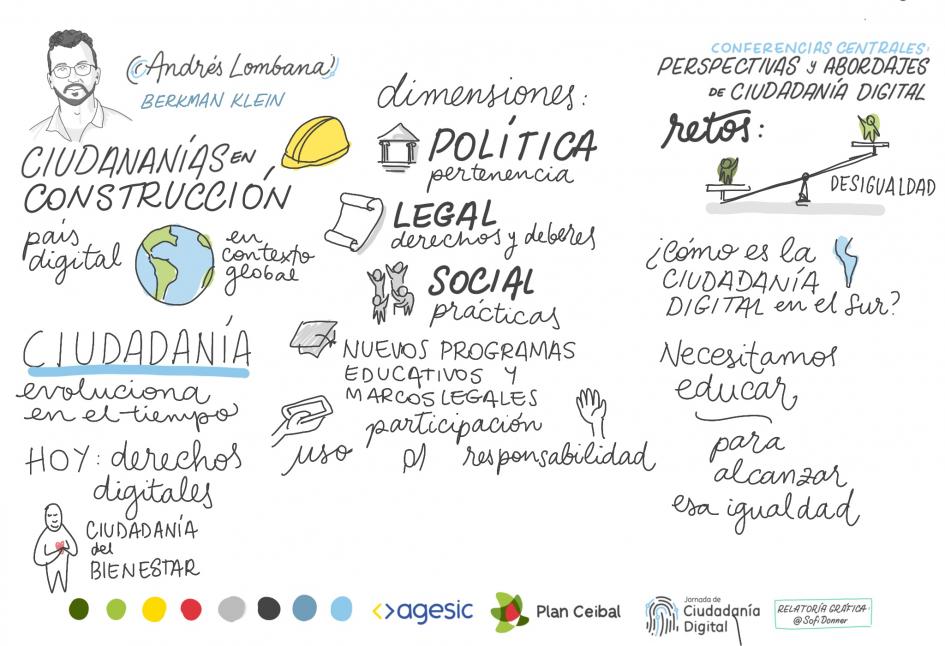 Andrés Lombana
BERKMAN KLEIN
CIUDANANÍAS EN
CONSTRUCCIÓN
país
digital
en
contexto
global
CIUDADANÍA
evoluciona
en el tiempo
HOY: derechos
digitales
CIUDADANÍA
del
BIENESTAR
dimensiones:
POLÍTICA
pertenencia
LEGAL
derechos y deberes
SOCIAL
prácticas
NUEVOS PROGRAMAS
EDUCATIVOS Y
MARCOS LEGALES
participación
uso
responsabilidad
CONFERENCIAS CENTRALES:
PERSPECTIVAS y ABORDAJES
DE CIUDADANÍA DIGITAL
retos:
DESIGUALDAD
¿Cómo es la
CIUDADANÍA
DIGITAL en el Sur?
Necesitamos
educar
para
alcanzar
esa igualdad
agesic
Plan Ceibal
Jornada de
Ciudadanía
Digital
RELATORÍA GRÁFICA:
@SofiDonner